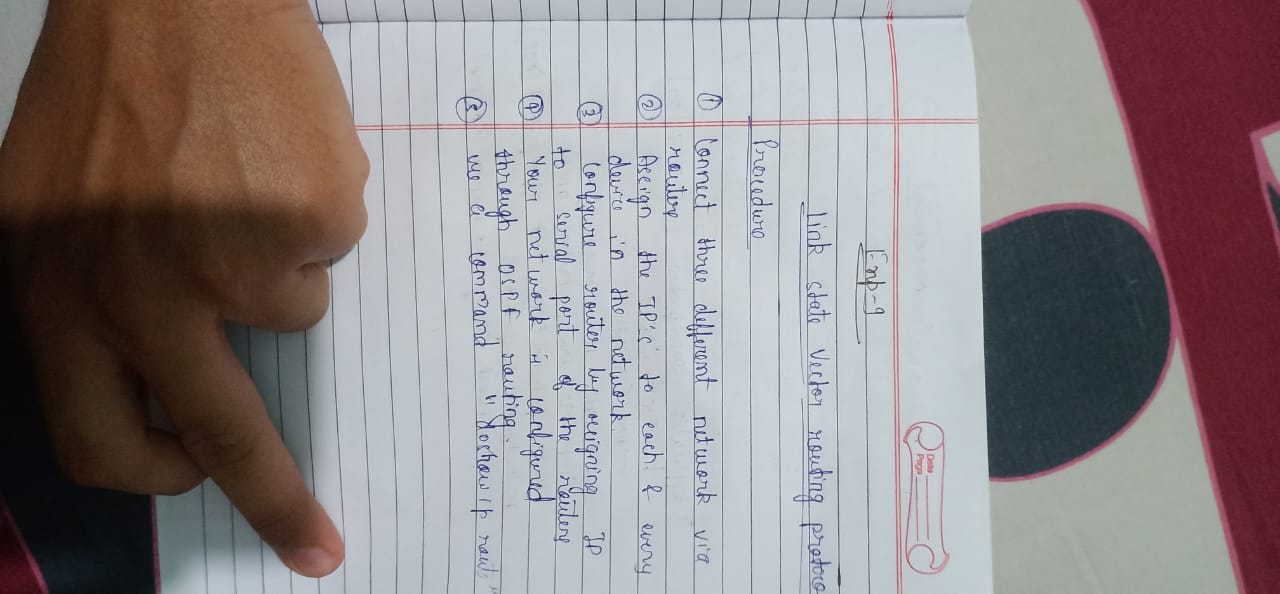 Date
Page
Exp-9
Link state Vector routing protoco
Procedure
① Connect three different network via
routers
② Assign the IP's to each & every
device in the network
③ Configure router by assigning IP
to serial port of the routers
④ Your network is configured
through OSPF routing.
⑤ use a command "doshow ip route"